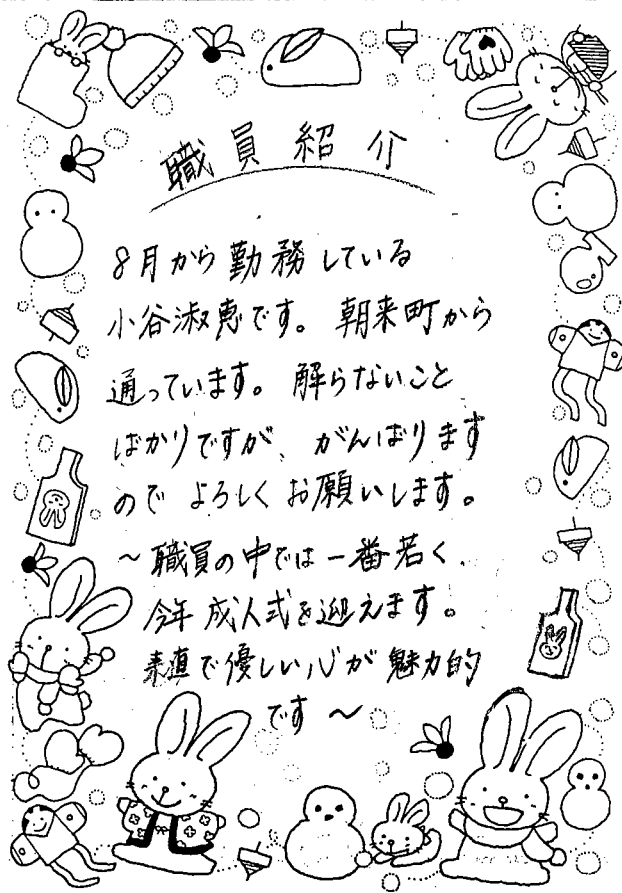 職員紹介
8月から勤務している
小谷淑恵です。朝来町から
通っています。解らないこと
ばかりですが、がんばります
ので よろしく お願いします。
~職員の中では一番若く、
今年 成人式を迎えます。
素直で優しい心が魅力的
です~